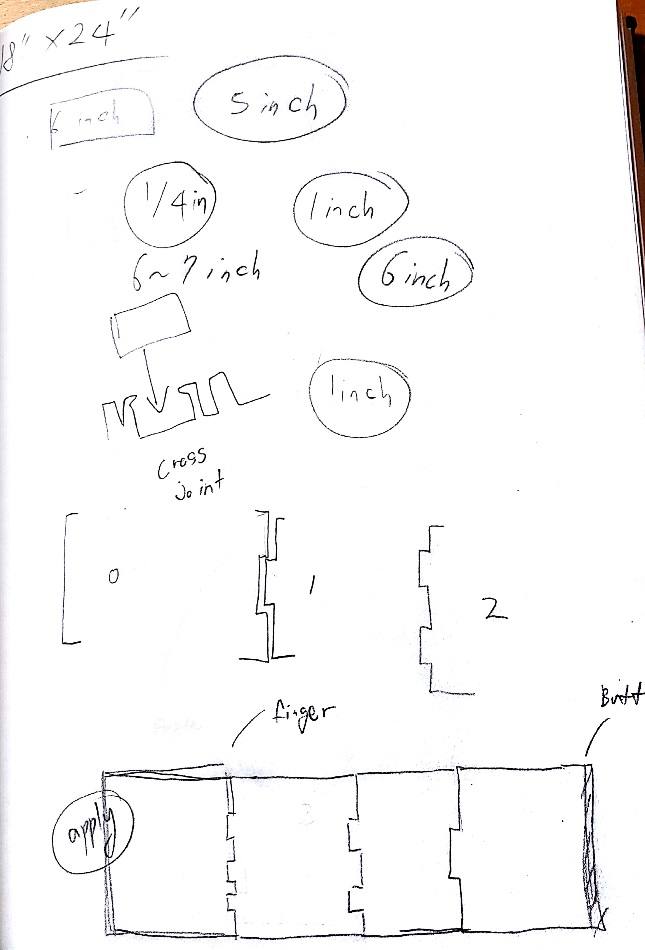 18" x 24"
6 inch
5 inch
1/4 in
1 inch
6 ~ 7 inch
6 inch
1 inch
Cross
Joint
0
1
2
finger
Butt
apply